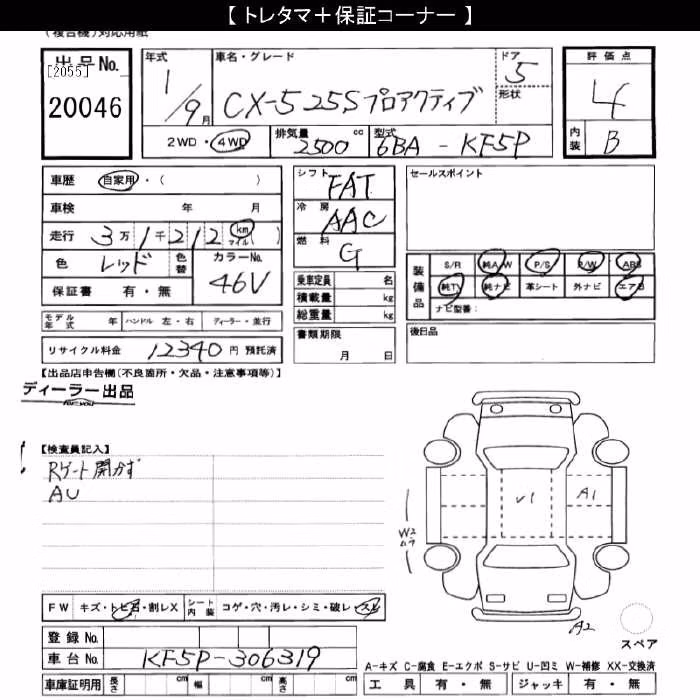 【 トレタマ＋保証コーナー 】
(複合機)対応用紙
出品No.
[2055]
20046
年式
1/9月
車名・グレード
CX-5 25S プロアクティブ
ドア
5
形状
評価点
4
内装 B
2WD・4WD
排気量 2500 cc
型式 6BA - KF5P
車歴 自家用・( )
車検 年 月
走行 3万1千212 km マイル ( )
色 レッド 色替 カラーNo. 46V
保証書 有・無
モデル年式 年 ハンドル 左・右 ディーラー・並行
リサイクル料金 12340 円 預託済
シフト FAT
冷房 AAC
燃料 G
乗車定員 名
積載量 kg
総重量 kg
書類期限
月 日
セールスポイント
装備品
S/R 純A/W P/S P/W ABS
純TV 純ナビ 革シート 外ナビ エアB
ナビ型番：
後日品
【出品店申告欄(不良箇所・欠品・注意事項等)】
ディーラー出品
【検査員記入】
Rゲート開かず
AU
V1
A1
W2
ムラ
A2
スペア
FW キズ・トビ石・割レX
シート内装 コゲ・穴・汚レ・シミ・破レ・スレ
登録No.
車台No. KF5P-306319
車庫証明用 長さ cm 幅 cm 高さ cm
A-キズ C-腐食 E-エクボ S-サビ U-凹ミ W-補修 XX-交換済
工具 有・無 ジャッキ 有・無